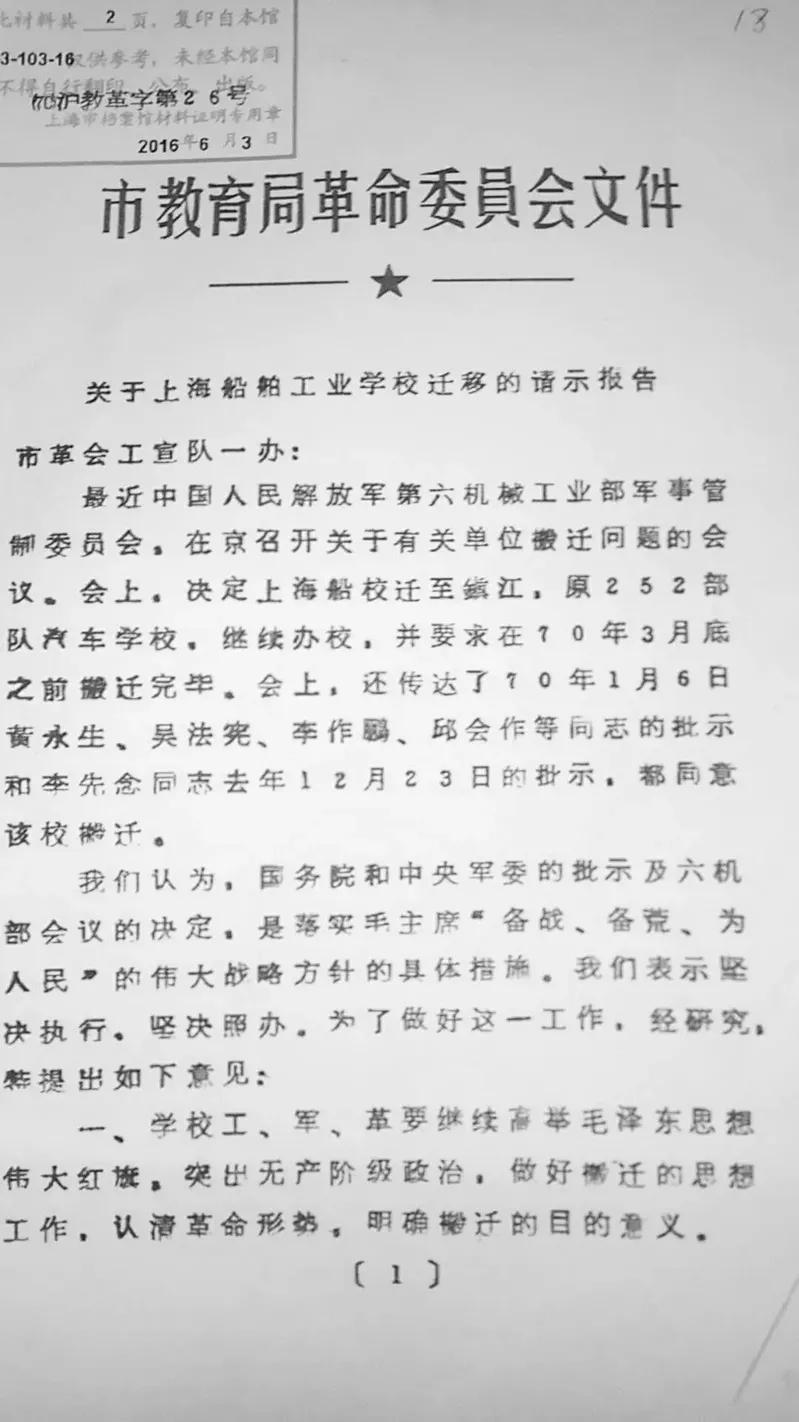 此材料共 2 页，复印自本馆
18
3-103-16
仅供参考，未经本馆同
不得自行翻印、公布、出版。
(70)沪教革字第26号
上海市档案馆材料证明专用章
2016年6月3日
市教育局革命委員会文件
关于上海船舶工业学校迁移的请示报告
市革会工宣队一办：
最近中国人民解放军第六机械工业部军事管
制委员会，在京召开关于有关单位搬迁问题的会
议。会上，决定上海船校迁至镇江，原252部
队汽车学校，继续办校，并要求在70年3月底
之前搬迁完毕。会上，还传达了70年1月6日
黄永生、吴法宪、李作鹏、邱会作等同志的批示
和李先念同志去年12月23日的批示，都同意
该校搬迁。
我们认为，国务院和中央军委的批示及六机
部会议的决定，是落实毛主席“备战、备荒、为
人民”的伟大战略方针的具体措施。我们表示坚
决执行。坚决照办。为了做好这一工作，经研究，
特提出如下意见：
一、学校工、军、革要继续高举毛泽东思想
伟大红旗，突出无产阶级政治，做好搬迁的思想
工作，认清革命形势，明确搬迁的目的意义。
〔1〕